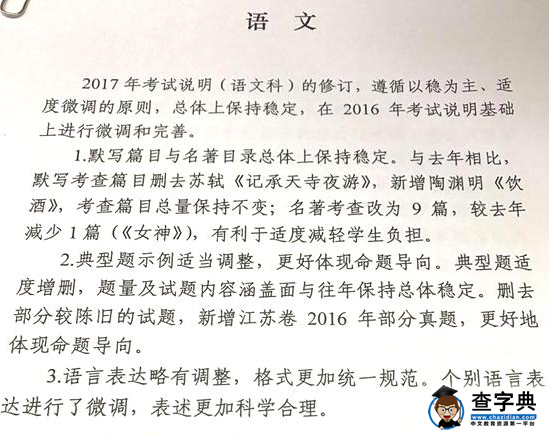 语 文
2017 年考试说明（语文科）的修订，遵循以稳为主、适
度微调的原则，总体上保持稳定，在 2016 年考试说明基础
上进行微调和完善。
1.默写篇目与名著目录总体上保持稳定。与去年相比，
默写考查篇目删去苏轼《记承天寺夜游》，新增陶渊明《饮
酒》，考查篇目总量保持不变；名著考查改为 9 篇，较去年
减少 1 篇（《女神》），有利于适度减轻学生负担。
2.典型题示例适当调整，更好体现命题导向。典型题适
度增删，题量及试题内容涵盖面与往年保持总体稳定。删去
部分较陈旧的试题，新增江苏卷 2016 年部分真题，更好地
体现命题导向。
3.语言表达略有调整，格式更加统一规范。个别语言表
达进行了微调，表述更加科学合理。
查字典
chazidian.com
中文教育资源第一平台